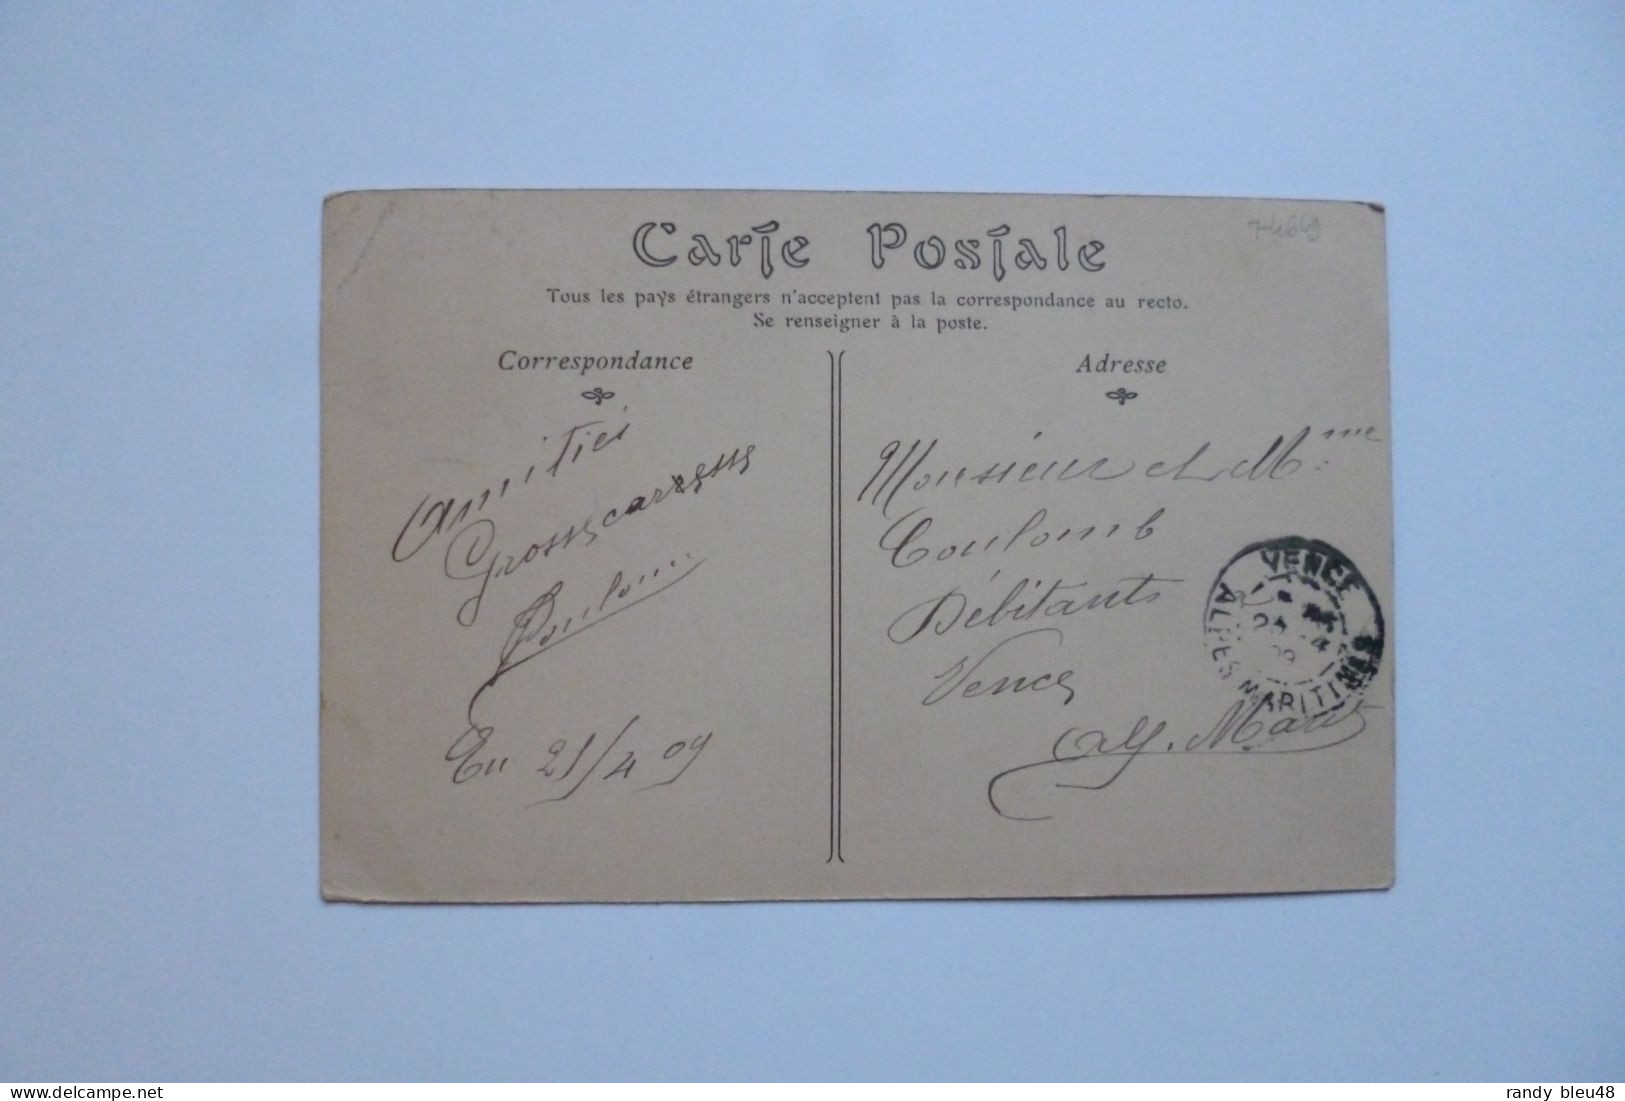 Carte Postale
Tous les pays étrangers n'acceptent pas la correspondance au recto.
Se renseigner à la poste.
Correspondance
Amitiés
Grosses caresses
En 21/4 09
Adresse
Monsieur et Mme
Coulomb
Débitants
Vence
Alp. Marit
VENCE
ALPES MARITIMES
randy bleu48